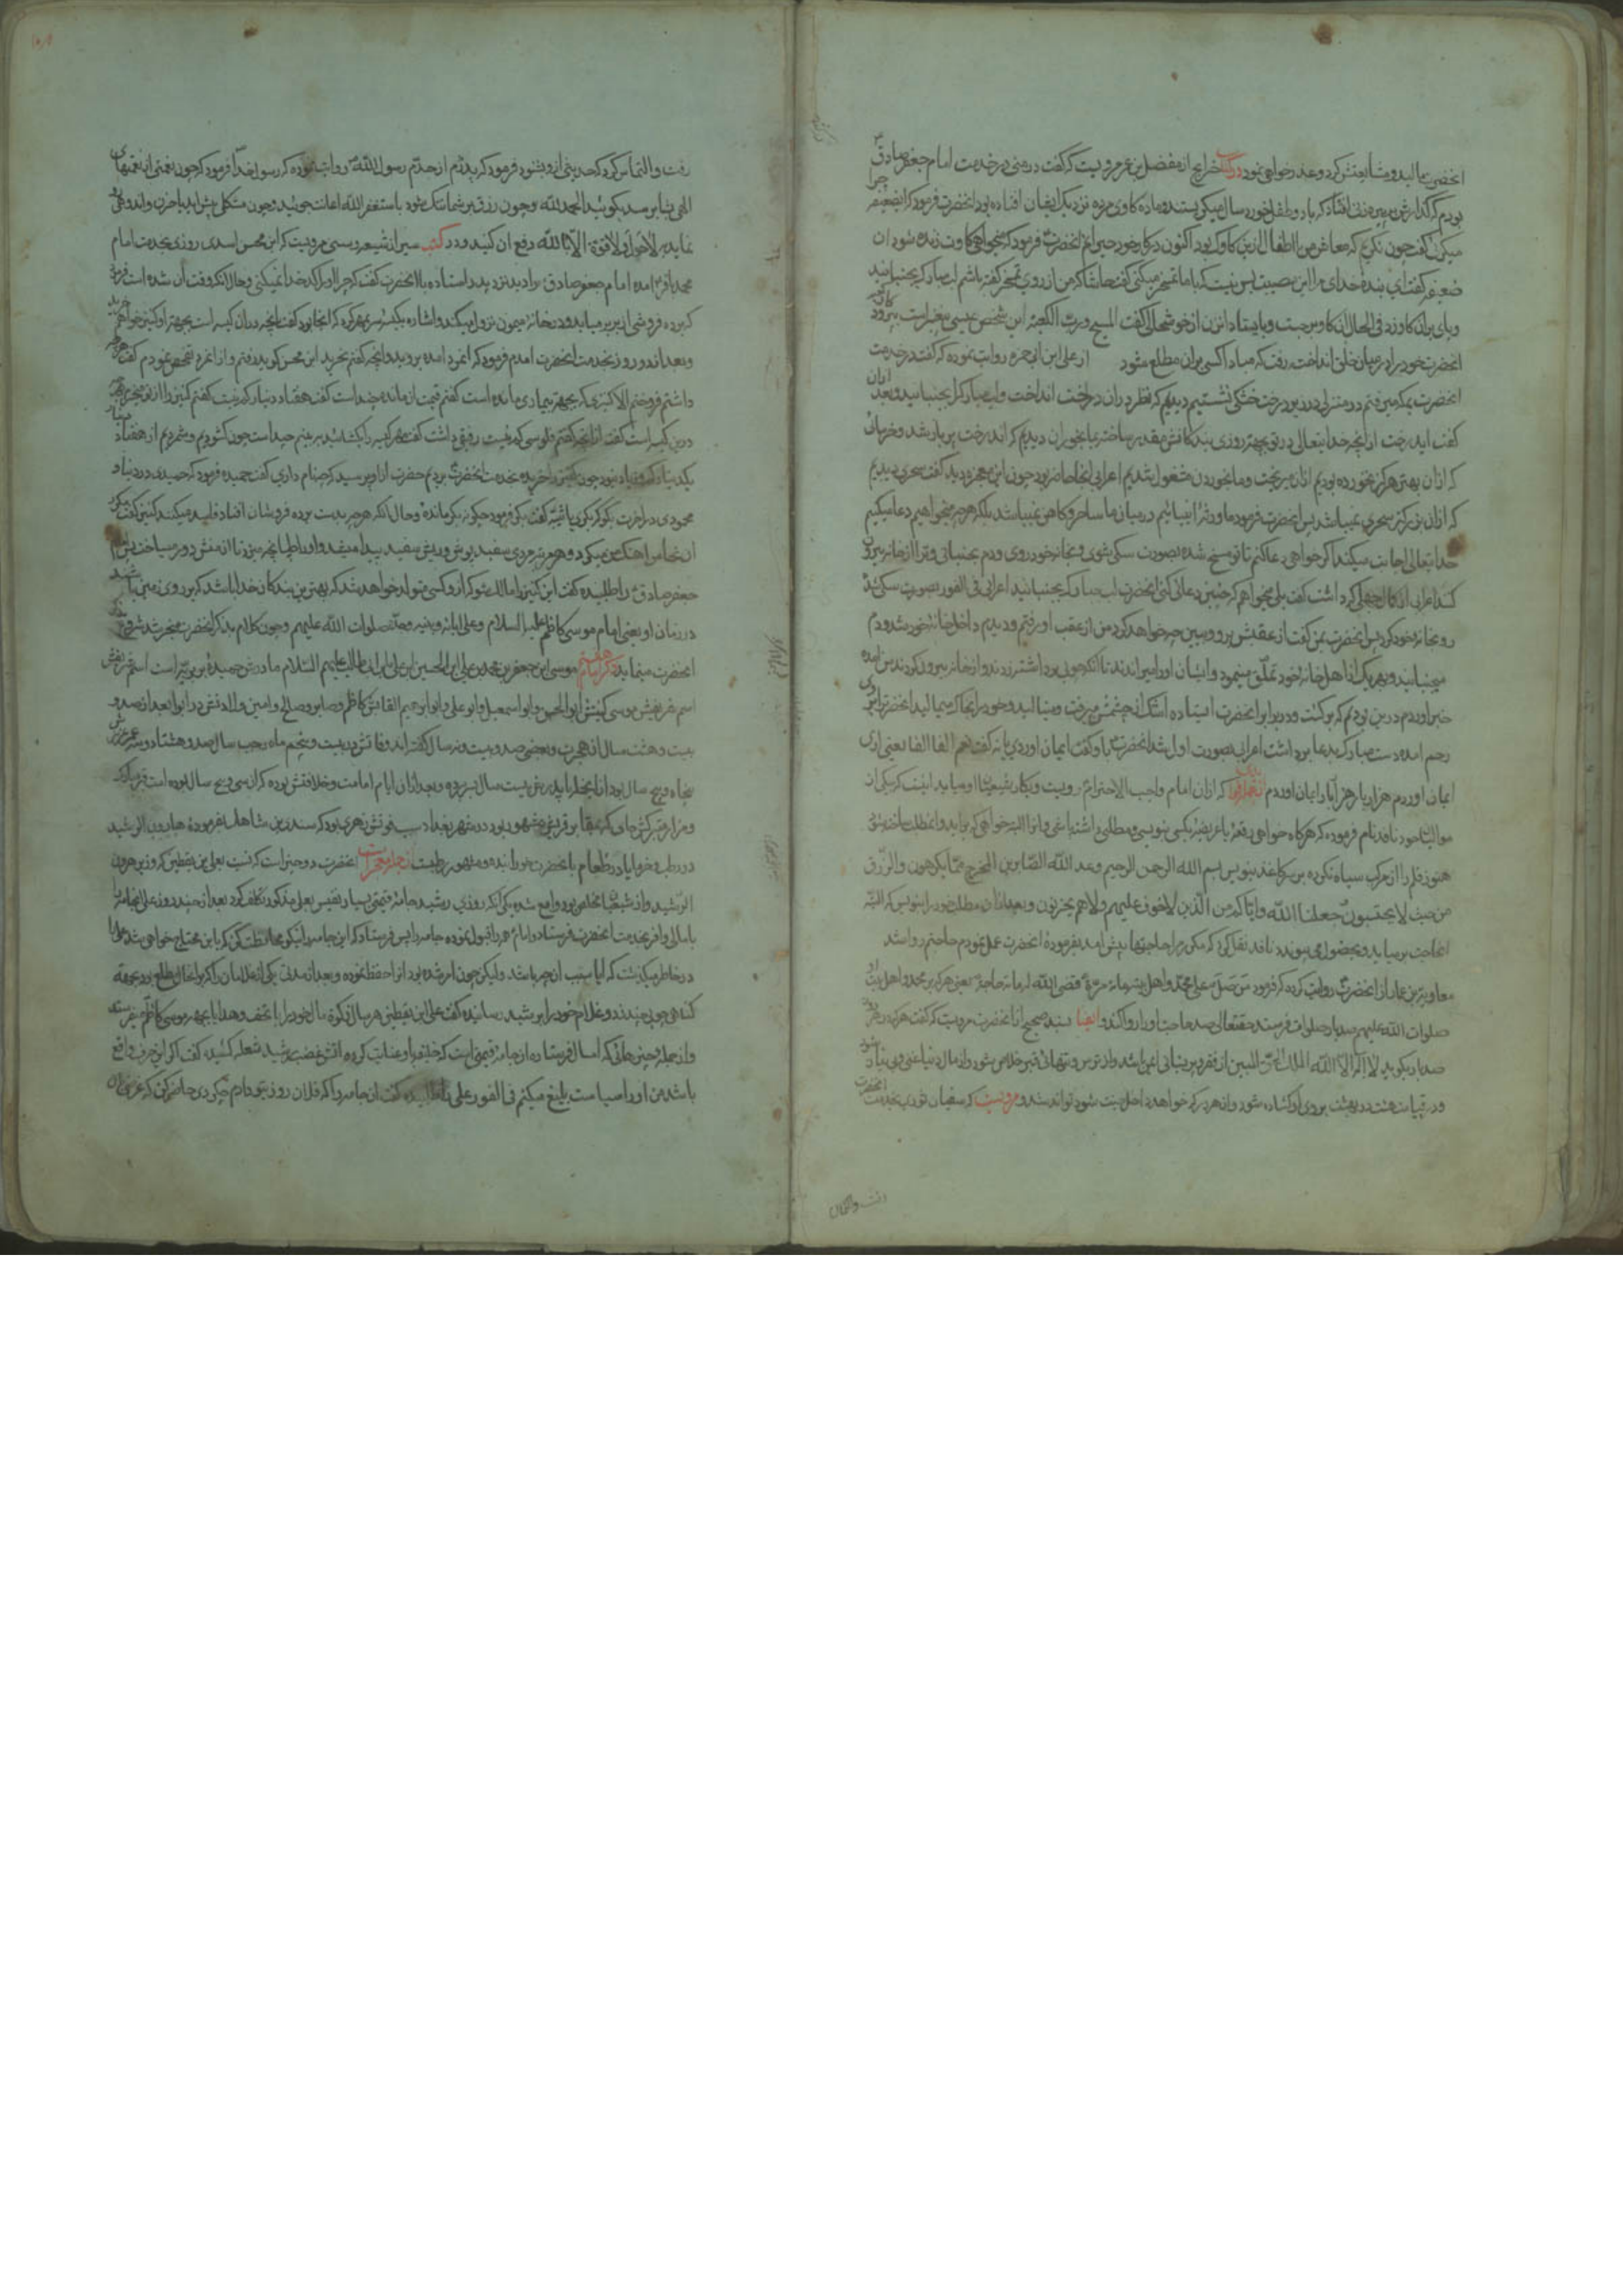 انحضرت مالید و متابعتش کرد و عذر خواهی نمود در کتاب خرایج از مفضل بن عمر مرویست که گفت در منی در خدمت امام جعفر صادق
بودم که گذارش به پیره زنی افتاد که با دو طفل خورد سال میگریستند و ماده کاوی مرده نزدیک ایشان افتاده بود انحضرت فرمود که ایضعیفه چرا
میکریی گفت چون نکریم که معاش من با اطفال ازین کاوک بود اکنون در کار خود حیرانم انحضرت فرمود که میخواهی کاوت زنده شود ان
ضعیفه گفت ای بنده خدای مرا این مصیبت بس نیست که با ما تمسخر میکنی گفت حاشا که من از روی تمسخر گفته باشم لب مبارک بجنبانید
و پای بران کاو زد فی الحال ان کاو برجست و بایستاد انزن از خوشحالی گفت المسیح و رب الکعبه این شخص عیسی پیغمبر است
انحضرت خود را در میان خلق انداخت و رفت که مبادا کسی بران مطلع شود از علی ابن ابی حمزه روایت نموده که گفت در خدمت
انحضرت بمکه میرفتم در منزلی در زیر درخت خشکی نشستیم دیدیم که نظر در ان درخت انداخت و لب مبارک را بجنبانید و بعد ازان
گفت ایدرخت از انچه خدایتعالی در تو بجهة روزی بندکانش مقدر ساخته بما بخوران دیدیم که اندرخت پر بار شد و خرمائی
که ازان بهتر هرکز نخورده بودیم ازان میریخت و ما بخوردن مشغول شدیم اعرابی انجا حاضر بود چون این معجزه دید گفت سحری دیدیم
که ازان بزرکتر سحری نمیباشد پس انحضرت فرمود ما ورثه انبیائیم در میان ما ساحر و کاهن نمیباشد بلکه هر چه میخواهیم دعا میکنیم
خدایتعالی اجابت میکند اکر خواهی دعا کنم تا تو مسخ شده بصورت سکی شوی و بخانه خود روی و دم بجنبانی و ترا از خانه بیرون
کنند اعرابی از کمال جهلی که داشت گفت بلی میخواهم که چنین دعائی کنی انحضرت لب مبارک بجنبانید اعرابی فی الفور بصورت سکی شد
رو بخانه خود کرد پس انحضرت بمن گفت از عقبش برو و ببین چه خواهد کرد من از عقب او رفتم و دیدم داخل خانه خود شد و دم
میجنبانید و بهر یک از اهل خانه خود تملق مینمود و ایشان او را میراندند تا انکه چوبی برداشتند زدند و از خانه بیرون کردند من امده
خبر اوردم درین بودیم که برکشت و در برابر انحضرت ایستاده اشک از چشمش میرفت و مینالید و خود را بخاک میمالید انحضرت را بروی
رحم امده دست مبارک بدعا برداشت اعرابی بصورت اول شد انحضرت باو گفت ایمان اوردی یا نه گفت نعم الفا الفا یعنی اری
ایمان اوردم هزار بار هزار بار ایمان اوردم که ازان امام واجب الاحترام مرویست و بکار شیعیان او میاید اینست که بیکی از
موالیان خود نافذ نام فرموده که هرکاه خواهی رقعه یا عریضه بکسی بنویسی و مطلبی داشته باشی و انرا البته خواهی که براید و انمطلب ساخته شود
هنوز قلم را از مرکب سیاه نکرده بر سر کاغذ بنویس بسم الله الرحمن الرحیم وعد الله الصابرین المخرج مما یکرهون والرزق
من حیث لا یحتسبون جعلنا الله وایاکم من الذین لا خوف علیهم ولا هم یحزنون و بعد ازان مطلب خود را بنویس که البته
انحاجت برمیاید و بحصول می پیوندد نافذ نقل کرد که مکرر مرا حاجتها پیش امد بفرموده انحضرت عمل نمودم حاجتم روا شد
معاویة بن عمار از انحضرت روایت کرده که فرمود من صلی علی محمد واهل بیته مائة مرة قضی الله له مائة حاجة یعنی هر که بر محمد و اهل بیت او
صلوات الله علیهم صد بار صلوات فرستد حقتعالی صد حاجت او را روا کند و ایضا بسند صحیح از انحضرت مرویست که گفت هر که در هر روز
صد بار بکوید لا اله الا الله الملک الحق المبین از فقر و پریشانی ایمن باشد و از ترس و تنهائی قبر خلاص شود و از مال دنیا غنی و بی نیاز شود
و در قیامت هشت در بهشت بروی او کشاده شود و از هر در که خواهد داخل جنت شود تواند شد و مرویست که سفیان ثوری بخدمت انحضرت
رفت والتماس
رفت و التماس کرد که حدیثی ازو بشنود فرمود که پدرم از جدم رسول الله روایت نموده که رسول خدا فرمود که چون نعمتی از نعمتهای
الهی بشما برسد بکوئید الحمد لله و چون رزق بر شما تنک شود باستغفر الله اعانت جوئید و چون مشکلی پیش اید یا حزن و اندوهی رو
نماید به لا حول ولا قوة الا بالله دفع ان کنید و در کتب سیر از شیعه و سنی مرویست که ابن محسن اسدی روزی بخدمت امام
محمد باقر امده امام جعفر صادق را دید نزد پدر استاده با انحضرت گفت که چرا او را کدخدا نمیکنی و حال انکه وقت ان شده است فرمود
که برده فروشی از بربر میاید و در خانه میمون نزول میکند و اشاره بکیسه سر بمهر کرد که انجا بود گفت انچه دران کیسه است بجهة او کنیز خواهم خرید
و بعد از دو روز بخدمت انحضرت امدم فرمود که انمرد امده بروید و انچه گفتم بخرید ابن محسن کوید رفتم و از انمرد تفحص نمودم گفت هر چه
داشتم فروختم الا کنیزی که بجهة بیماری مانده است گفتم قیمت ان مانده چند است گفت هفتاد دینار کم نیست گفتم کنیز را از تو میخرم بهر چه
درین کیسه است گفت
یک دینار کم و زیاد نبود چون کنیز را خریده بخدمت انحضرت بردیم حضرت ازو پرسید که چه نام داری گفت حمیده فرمود که حمیدی در دنیا و
محمودی در اخرت بکو که بکری یا ثیبه گفت بکر فرمود چکونه بکر مانده و حال انکه هر چه بدست برده فروشان افتاد فاسد میکنند کنیز گفت مکرر
ان نخاس اهنک من میکرد و هر مرتبه مردی سفید موی و ریش سفید پیدا میشد و او را طپانچه میزد تا از منش دور میساخت پس امام
جعفر صادق را طلبیده گفت این کنیز را مالک شو که از و کسی متولد خواهد شد که بهترین بندکان خدا باشد که بر روی زمین باشند
در زمان او یعنی امام موسی کاظم علیه السلام وعلی ابائه وبنیه وعترته صلوات الله علیهم و چون کلام بذکر انحضرت منجر شد شروع بذکر
انحضرت مینماید ذکر امام هفتم موسی ابن جعفر بن محمد بن علی ابن الحسین ابن علی ابن ابی طالب علیهم السلام مادرش حمیده بربریه است اسم شریفش
اسم شریفش موسی کنیتش ابو الحسن و ابو اسمعیل و ابو علی و ابو ابرهیم القابش کاظم و صابر و صالح و امین ولادتش در ابوا بعد از صد و
بیست و هشت سال از هجرت و بعضی صد و بیست و نه سال گفته اند وفاتش در بیست و پنجم ماه رجب سال صد و هشتاد و سه عمر عزیزش
پنجاه و پنج سال بود ازانجمله با پدر بزرکش بیست سال بسر برده و بعد ازان ایام امامت و خلافتش بوده که ان سی و پنج سال بوده است قبر مبارک
و مزار متبرکش جای که بمقابر قریش مشهور بود در شهر بغداد سبب فوتش زهری بود که سندی بن شاهک بفرموده هارون الرشید
در رطب و خرما یا در طعام بانحضرت خورانیده و مشهور رطبست از جمله معجزات انحضرت دو چیز است که نسبت بعلی بن یقطین که وزیر هرون
الرشید و از شیعیان مخلص بود واقع شده یکی انکه روزی رشید جامه قیمتی بسیار نفیس بعلی مذکور تکلف کرد بعد از چند روز علی انجامه را
با مالی وافر بخدمت انحضرت فرستاد و امام همه را قبول نموده جامه را پس فرستاد که این جامه را نیکو محافظت کن که باین محتاج خواهی شد علی را
در خاطر میکذشت که ایا سبب ان چه باشد ولیکن چون امر شده بود انرا حفظ نموده و بعد از مدتی یکی از غلامان را که بر احوال او مطلع بود بجهة
کناهی چوبی چند زد و غلام خود را برشید رسانیده گفت علی ابن یقطین هر سال زکوة مال خود را با تحف و هدایا بجهة موسی کاظم میفرستد
و از جمله چیزهائی که امسال فرستاده انجامه قیمتی است که خلیفه باو عنایت کرده اتش غضب رشید شعله کشیده گفت اکر این حرف واقع
باشد من او را سیاست بلیغ میکنم فی الفور علی را طلبیده گفت ان جامه را که فلان روز بتو دادم چکردی حاضر کن که غرضی